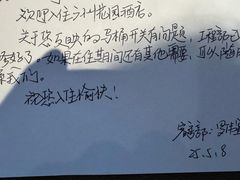 欢迎入住方圳花园酒店。
关于您反映的马桶开关有问题,工程部已
好了。如果在住期间还有其他需要,可以随
系我们。
祝您入住愉快!
客房部:罗
25.5.8